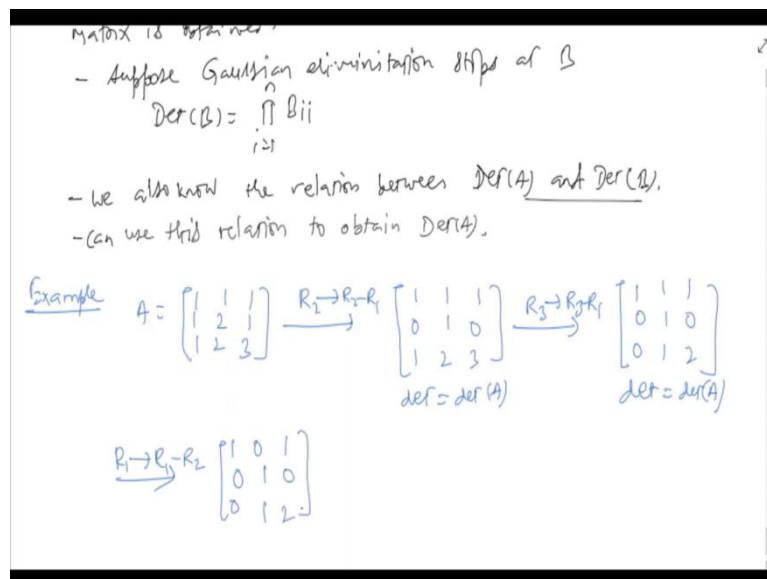 Matrix is obtained.
- Suppose Gaussian eliminitation stops at B
Det(B) = n ∏ i=1 Bii
- We also know the relation between Det(A) and Det(B).
- Can use this relation to obtain Det(A).
Example A = [1 1 1; 1 2 1; 1 2 3] R2→R2-R1 [1 1 1; 0 1 0; 1 2 3] R3→R3-R1 [1 1 1; 0 1 0; 0 1 2]
det = det(A) det = det(A)
R1→R1-R2 [1 0 1; 0 1 0; 0 1 2]